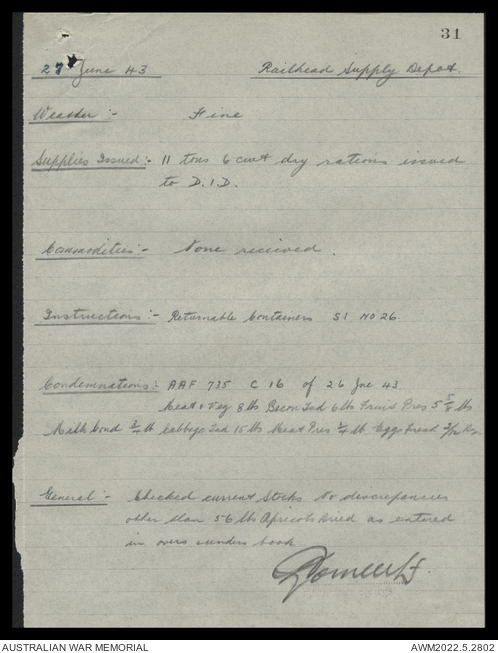 31
27 June 43 Railhead Supply Depot.
Weather :- Fine
Supplies Issued :- 11 tons 6 cwt dry rations issued
to D.I.D.
Commodities :- None received.
Instructions :- Returnable Containers SI NO 26.
Condemnations :- AAF 735 C 16 of 26 Jne 43
Meat & Veg 8 lbs Bacon Tnd 6 lbs Fruit Pres 5 5/8 lbs
Milk Cond 3/4 lb Cabbage Tnd 15 lbs Meat Pres 3/4 lb Eggs Fresh
General :- Checked current stocks No descrepancies
other than 56 lbs Apricots Dried as entered
in overs unders book
AUSTRALIAN WAR MEMORIAL AWM2022.5.2802